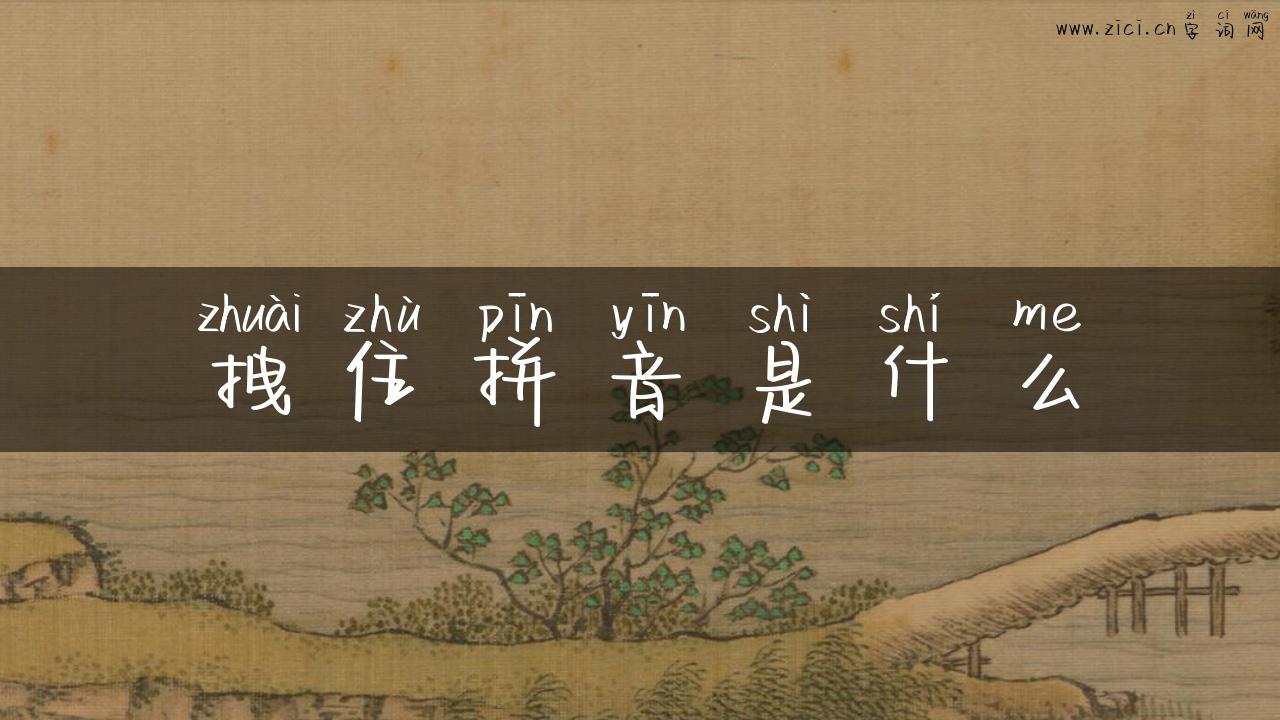 zì cí wǎng
www.zici.cn 字 词 网
zhuài zhù pīn yīn shì shí me
拽 住 拼 音 是 什 么